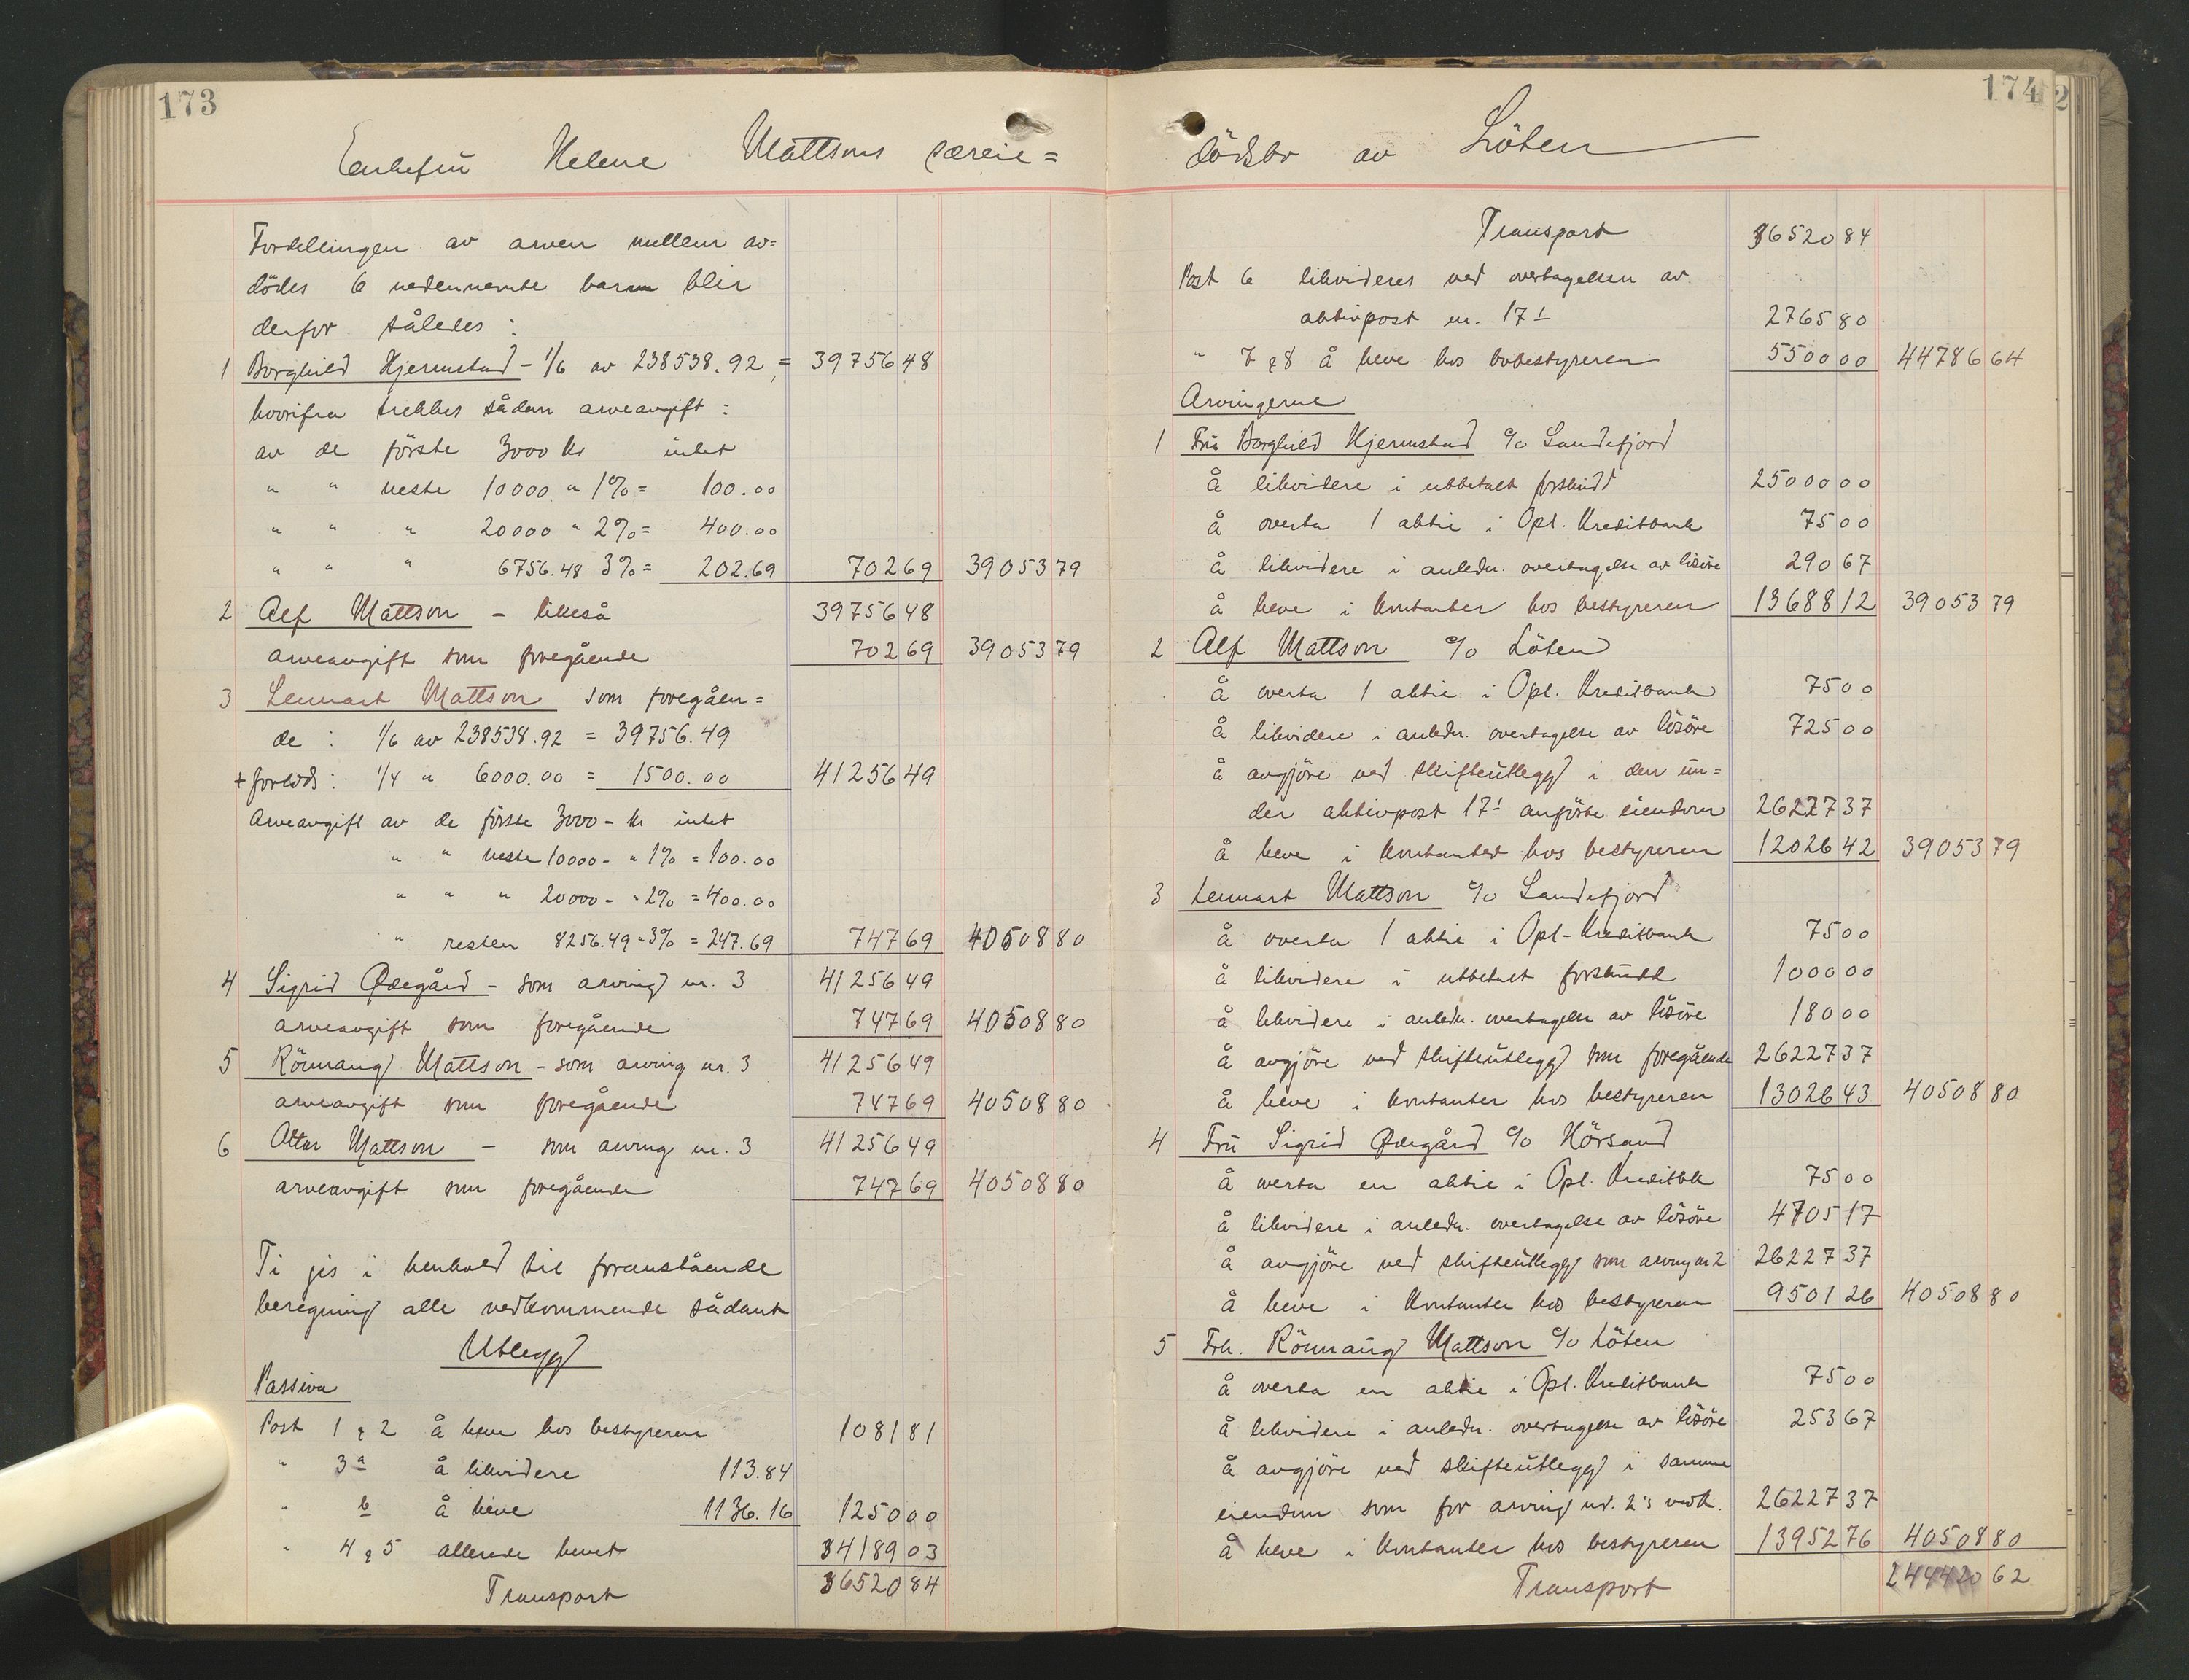 173
Enkefru Helene Mattsons særeie=
Fordelingen av arven mellem av=
dödes 6 nedennevnte barn blir
derfor således:
1 Borghild Hjermstad - 1/6 av 238538.92, = 39756 48
hvorifra trekkes sådan arveavgift:
av de förste 3000 kr intet
" " neste 10000 " 1% = 100.00
" " " 20000 " 2% = 400.00
" " " 6756.48 3% = 202.69 702 69 39053 79
2 Alf Mattson - likeså 39756 48
arveavgift som foregående 702 69 39053 79
3 Lennart Mattson som foregåen=
de: 1/6 av 238538.92 = 39756.49
+ forlods: 1/4 " 6000.00 = 1500.00 41256 49
Arveavgift av de förste 3000 - kr intet
" " neste 10000 - " 1% = 100.00
" " " 20000 - " 2% = 400.00
" resten 8256.49 " 3% = 247.69 747 69 40508 80
4 Sigrid Ødegård - som arving nr. 3 41256 49
arveavgift som foregående 747 69 40508 80
5 Rönnaug Mattson - som arving nr. 3 41256 49
arveavgift som foregående 747 69 40508 80
6 Attar Mattson - som arving nr. 3 41256 49
arveavgift som foregående 747 69 40508 80
Ti gis i henhold til foranstående
beregning alle vedkommende sådant
Utlegg
Passiva
Post 1 & 2 å heve hos bestyreren 1081 81
" 3 a å likvidere 113.84
" b å heve 1136.16 1250 00
" 4 & 5 allerede hevet 34189 03
Transport 36520 84
174
2
dödsbo av Löten
Transport 36520 84
Post 6 likvideres ved overtagelsen av
aktivpost nr. 17 1 2765 80
" 7 & 8 å heve hos bobestyreren 5500 00 44786 64
Arvingerne
1 Fru Borghild Hjermstad c/o Sandefjord
å likvidere i utbetalt forskudd 25000 00
å overta 1 aktie i Opl. Kreditbank 75 00
å likvidere i anledn. overtagelse av lösöre 290 67
å heve i kontanter hos bestyreren 13688 12 39053 79
2 Alf Mattson c/o Löten
å overta 1 aktie i Opl. Kreditbank 75 00
å likvidere i anledn. overtagelse av lösöre 725 00
å avgjöre ved skifteutlegg i den un=
der aktivpost 17 1 anförte eiendom 26227 37
å heve i kontanter hos bestyreren 12026 42 39053 79
3 Lennart Mattson c/o Sandefjord
å overta 1 aktie i Opl-Kreditbank 75 00
å likvidere i utbetalt forskudd 1000 00
å likvidere i anledn. overtagelse av lösöre 180 00
å avgjöre ved skifteutlegg som foregående 26227 37
å heve i kontanter hos bestyreren 13026 43 40508 80
4 Fru Sigrid Ødegård c/o Hörsand
å overta en aktie i Opl. Kreditbk 75 00
å likvidere i anledn. overtagelse av lösöre 4705 17
å avgjöre ved skifteutlegg som arving nr 2 26227 37
å heve i kontanter hos bestyreren 9501 26 40508 80
5 Frk. Rönnaug Mattson c/o Löten
å overta en aktie i Opl. Kreditbank 75 00
å likvidere i anledn. overtagelse av lösöre 253 67
å avgjöre ved skifteutlegg i samme
eiendom som for arving nr. 2's vedk. 26227 37
å heve i kontanter hos bestyreren 13952 76 40508 80
Transport 244420 62